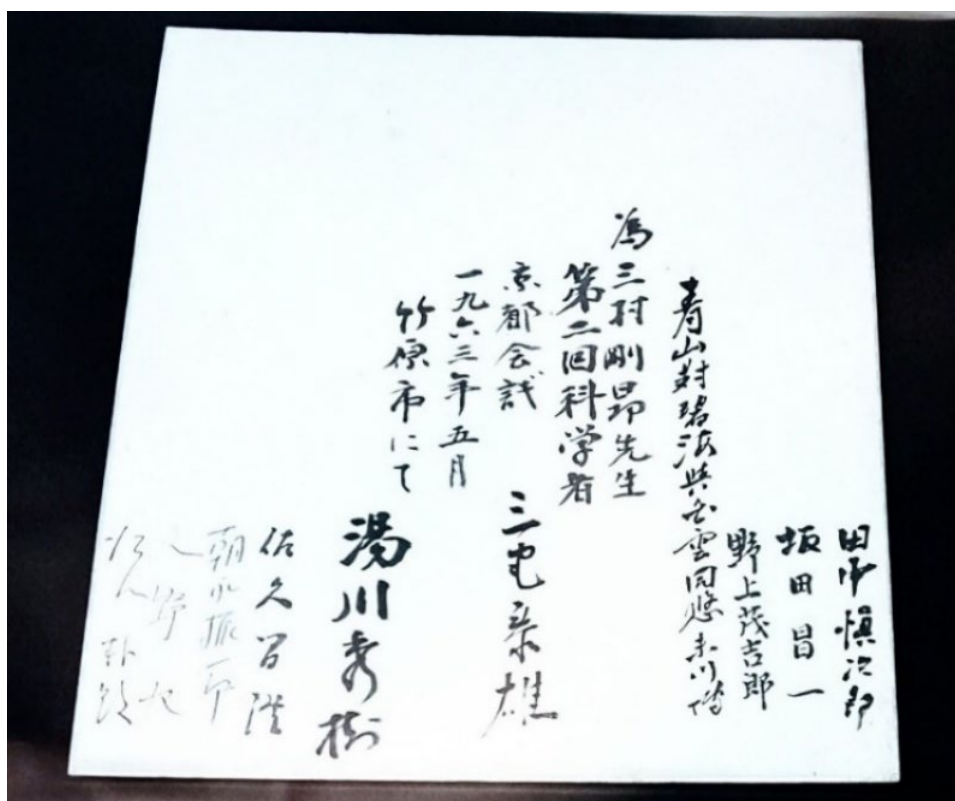 田中慎次郎
坂田昌一
野上茂吉郎
青山對碧海與白雲同悠 末川博
為三村剛昴先生
第二回科学者
京都会議
一九六三年五月
竹原市にて
三宅泰雄
湯川秀樹
佐久間澄
朝永振一郎